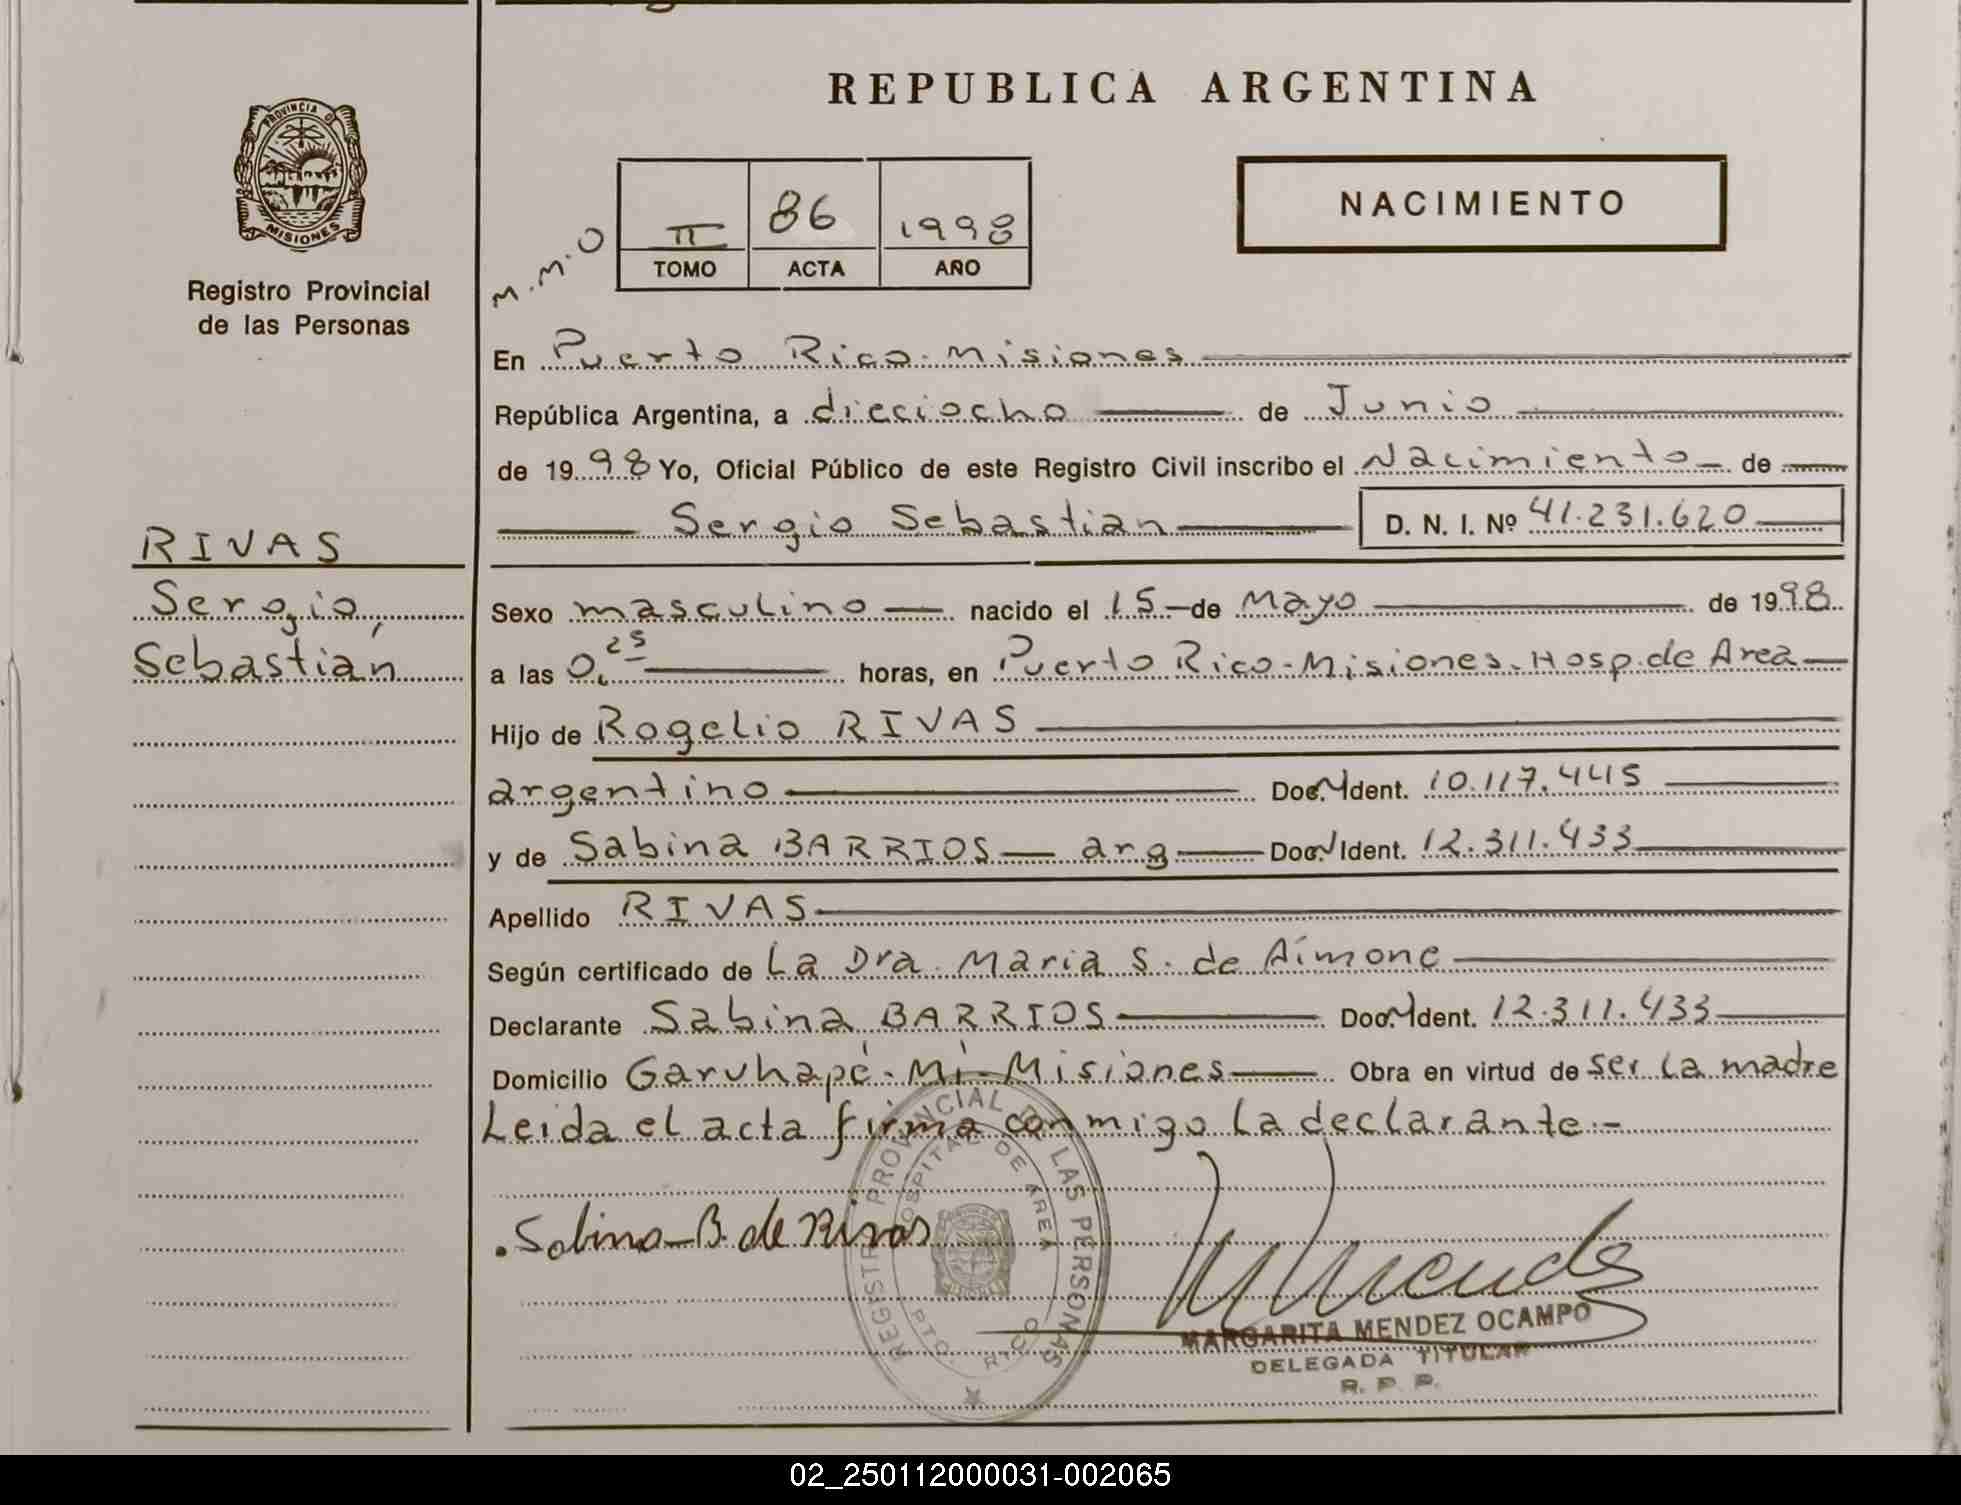 REPUBLICA ARGENTINA
PROVINCIA D
MISIONES
Registro Provincial
de las Personas
NACIMIENTO
M.M.O
II 86 1998
TOMO ACTA AÑO
En Puerto Rico-Misiones
República Argentina, a dieciocho de Junio
de 1998 Yo, Oficial Público de este Registro Civil inscribo el Nacimiento de
Sergio Sebastian D. N. I. Nº 41.231.620
RIVAS
Sergio,
Sebastián
Sexo masculino nacido el 15 de Mayo de 1998
a las 0.25 horas, en Puerto Rico-Misiones-Hosp.de Area
Hijo de Rogelio RIVAS
argentino Doc. Ident. 10.117.445
y de Sabina BARRIOS arg Doc. Ident. 12.311.433
Apellido RIVAS
Según certificado de La Dra. Maria S. de Aimone
Declarante Sabina BARRIOS Doc. Ident. 12.311.433
Domicilio Garuhapé-Mí-Misiones Obra en virtud de ser la madre
Leida el acta firma conmigo la declarante.-
Sabina B. de Rivas
REGISTRO PROVINCIAL DE LAS PERSONAS
HOSPITAL DE AREA
PTO. RICO
MARGARITA MENDEZ OCAMPO
DELEGADA TITULAR
R. P. P.
02_250112000031-002065